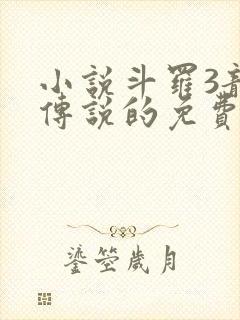 小說斗羅3
傳說的免費
鎏箜歲月